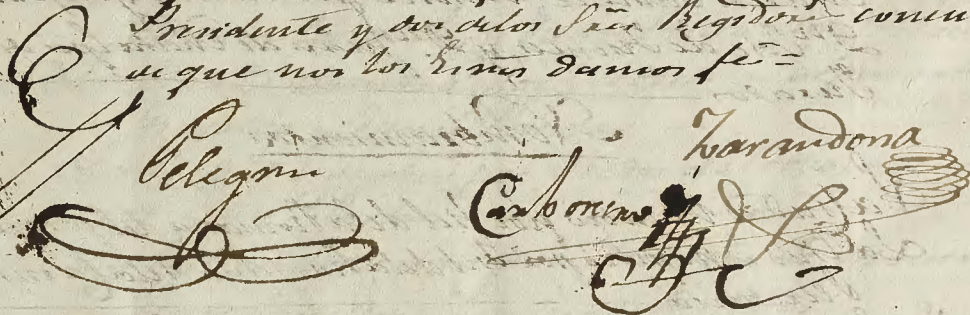 Presidente y dos delos Sres Regidores concu
de que nos los Essnos damos fe =
Pelegrin
Zarandona
Carbonero